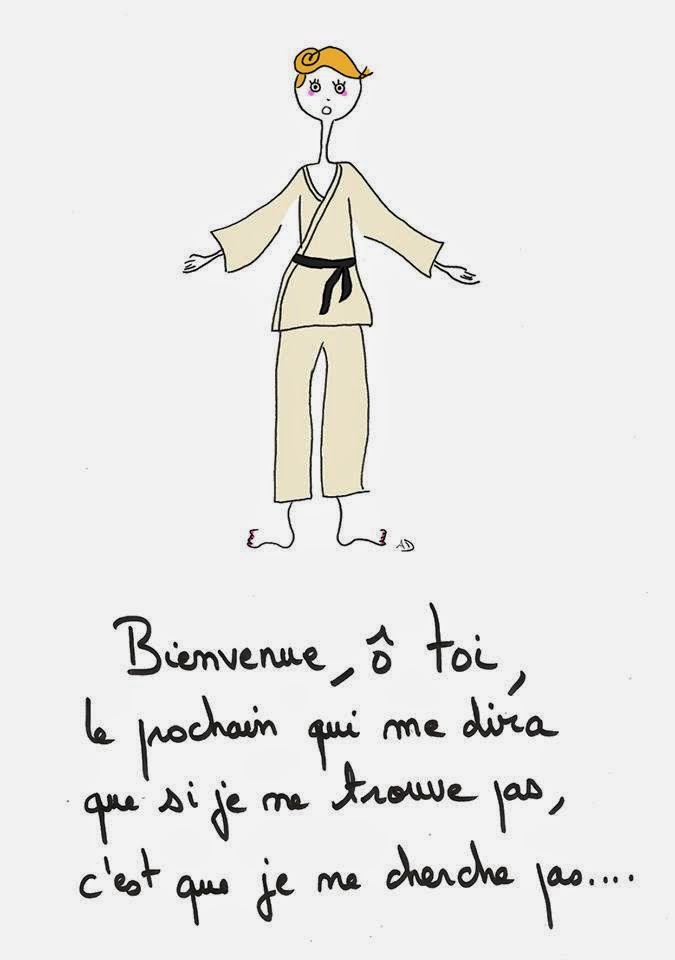 AD
Bienvenue, ô toi,
le prochain qui me dira
que si je ne trouve pas,
c'est que je ne cherche pas....